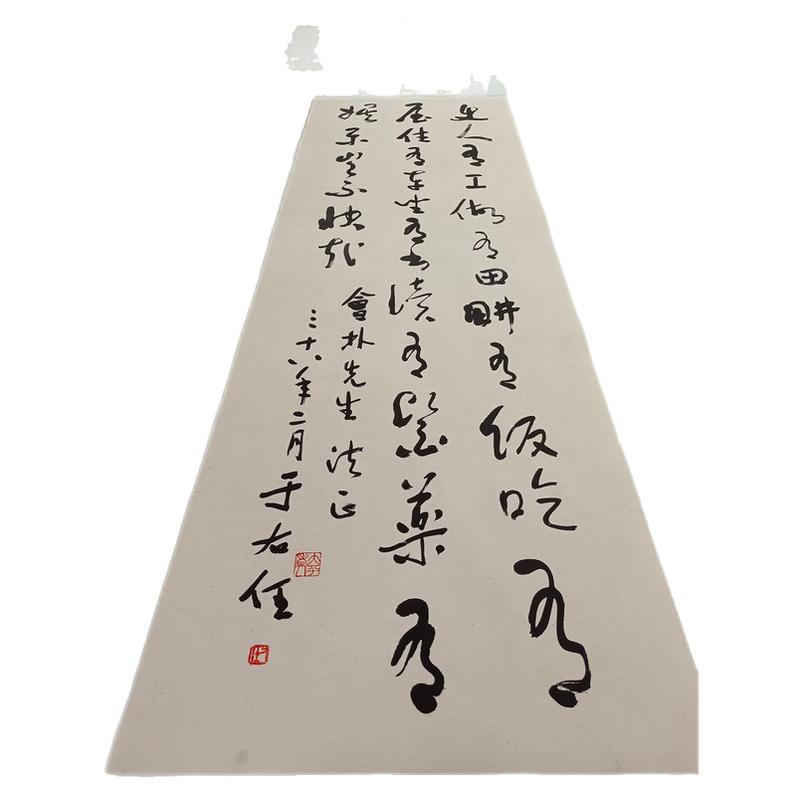 人有工做有田耕有飯吃有
屋住有車坐有書讀有醫藥有
娛樂豈不快哉
會朴先生法正
三十八年二月于右任